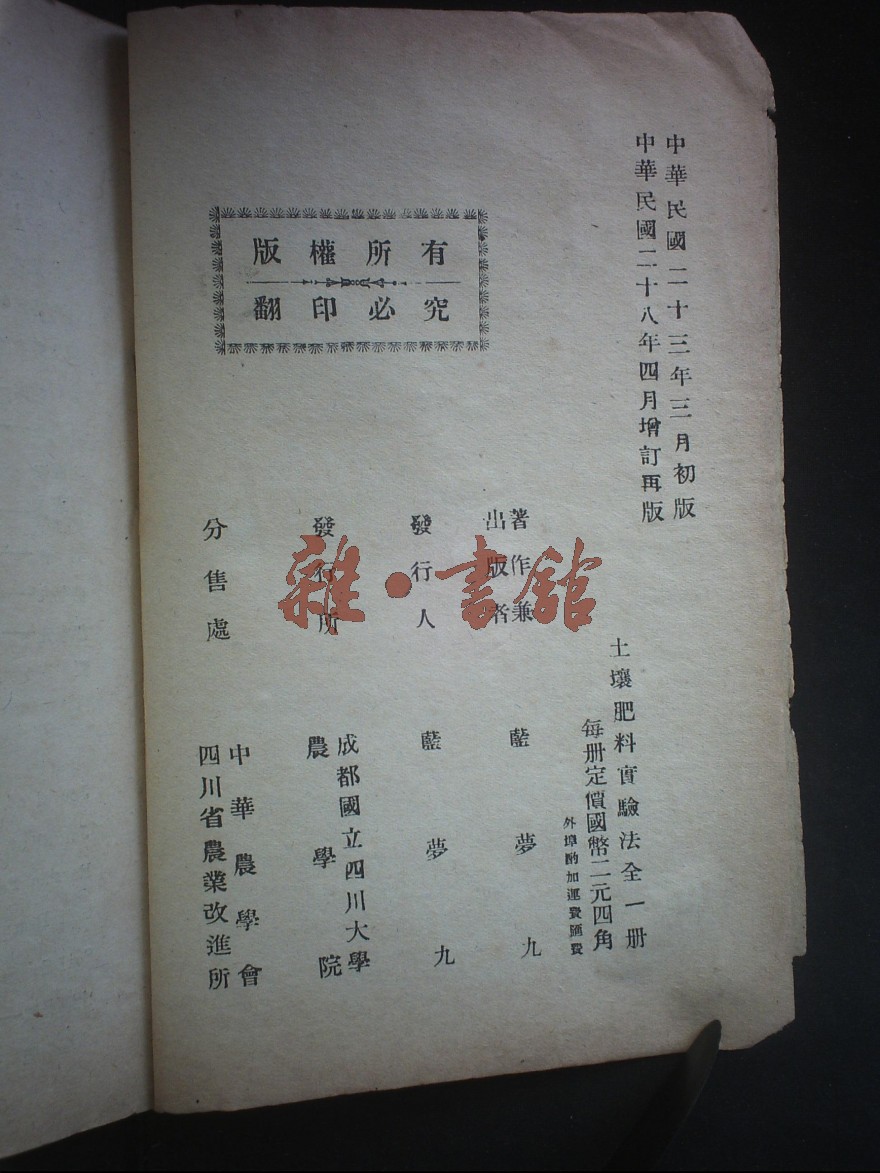 中華民國二十三年三月初版
中華民國二十八年四月增訂再版
土壤肥料實驗法全一册
每册定價國幣二元四角
外埠酌加運費匯費
著作兼
出版者
藍夢九
發行人
藍夢九
發行所
成都國立四川大學
農學院
分售處
中華農學會
四川省農業改進所
版權所有
翻印必究
雜·書館